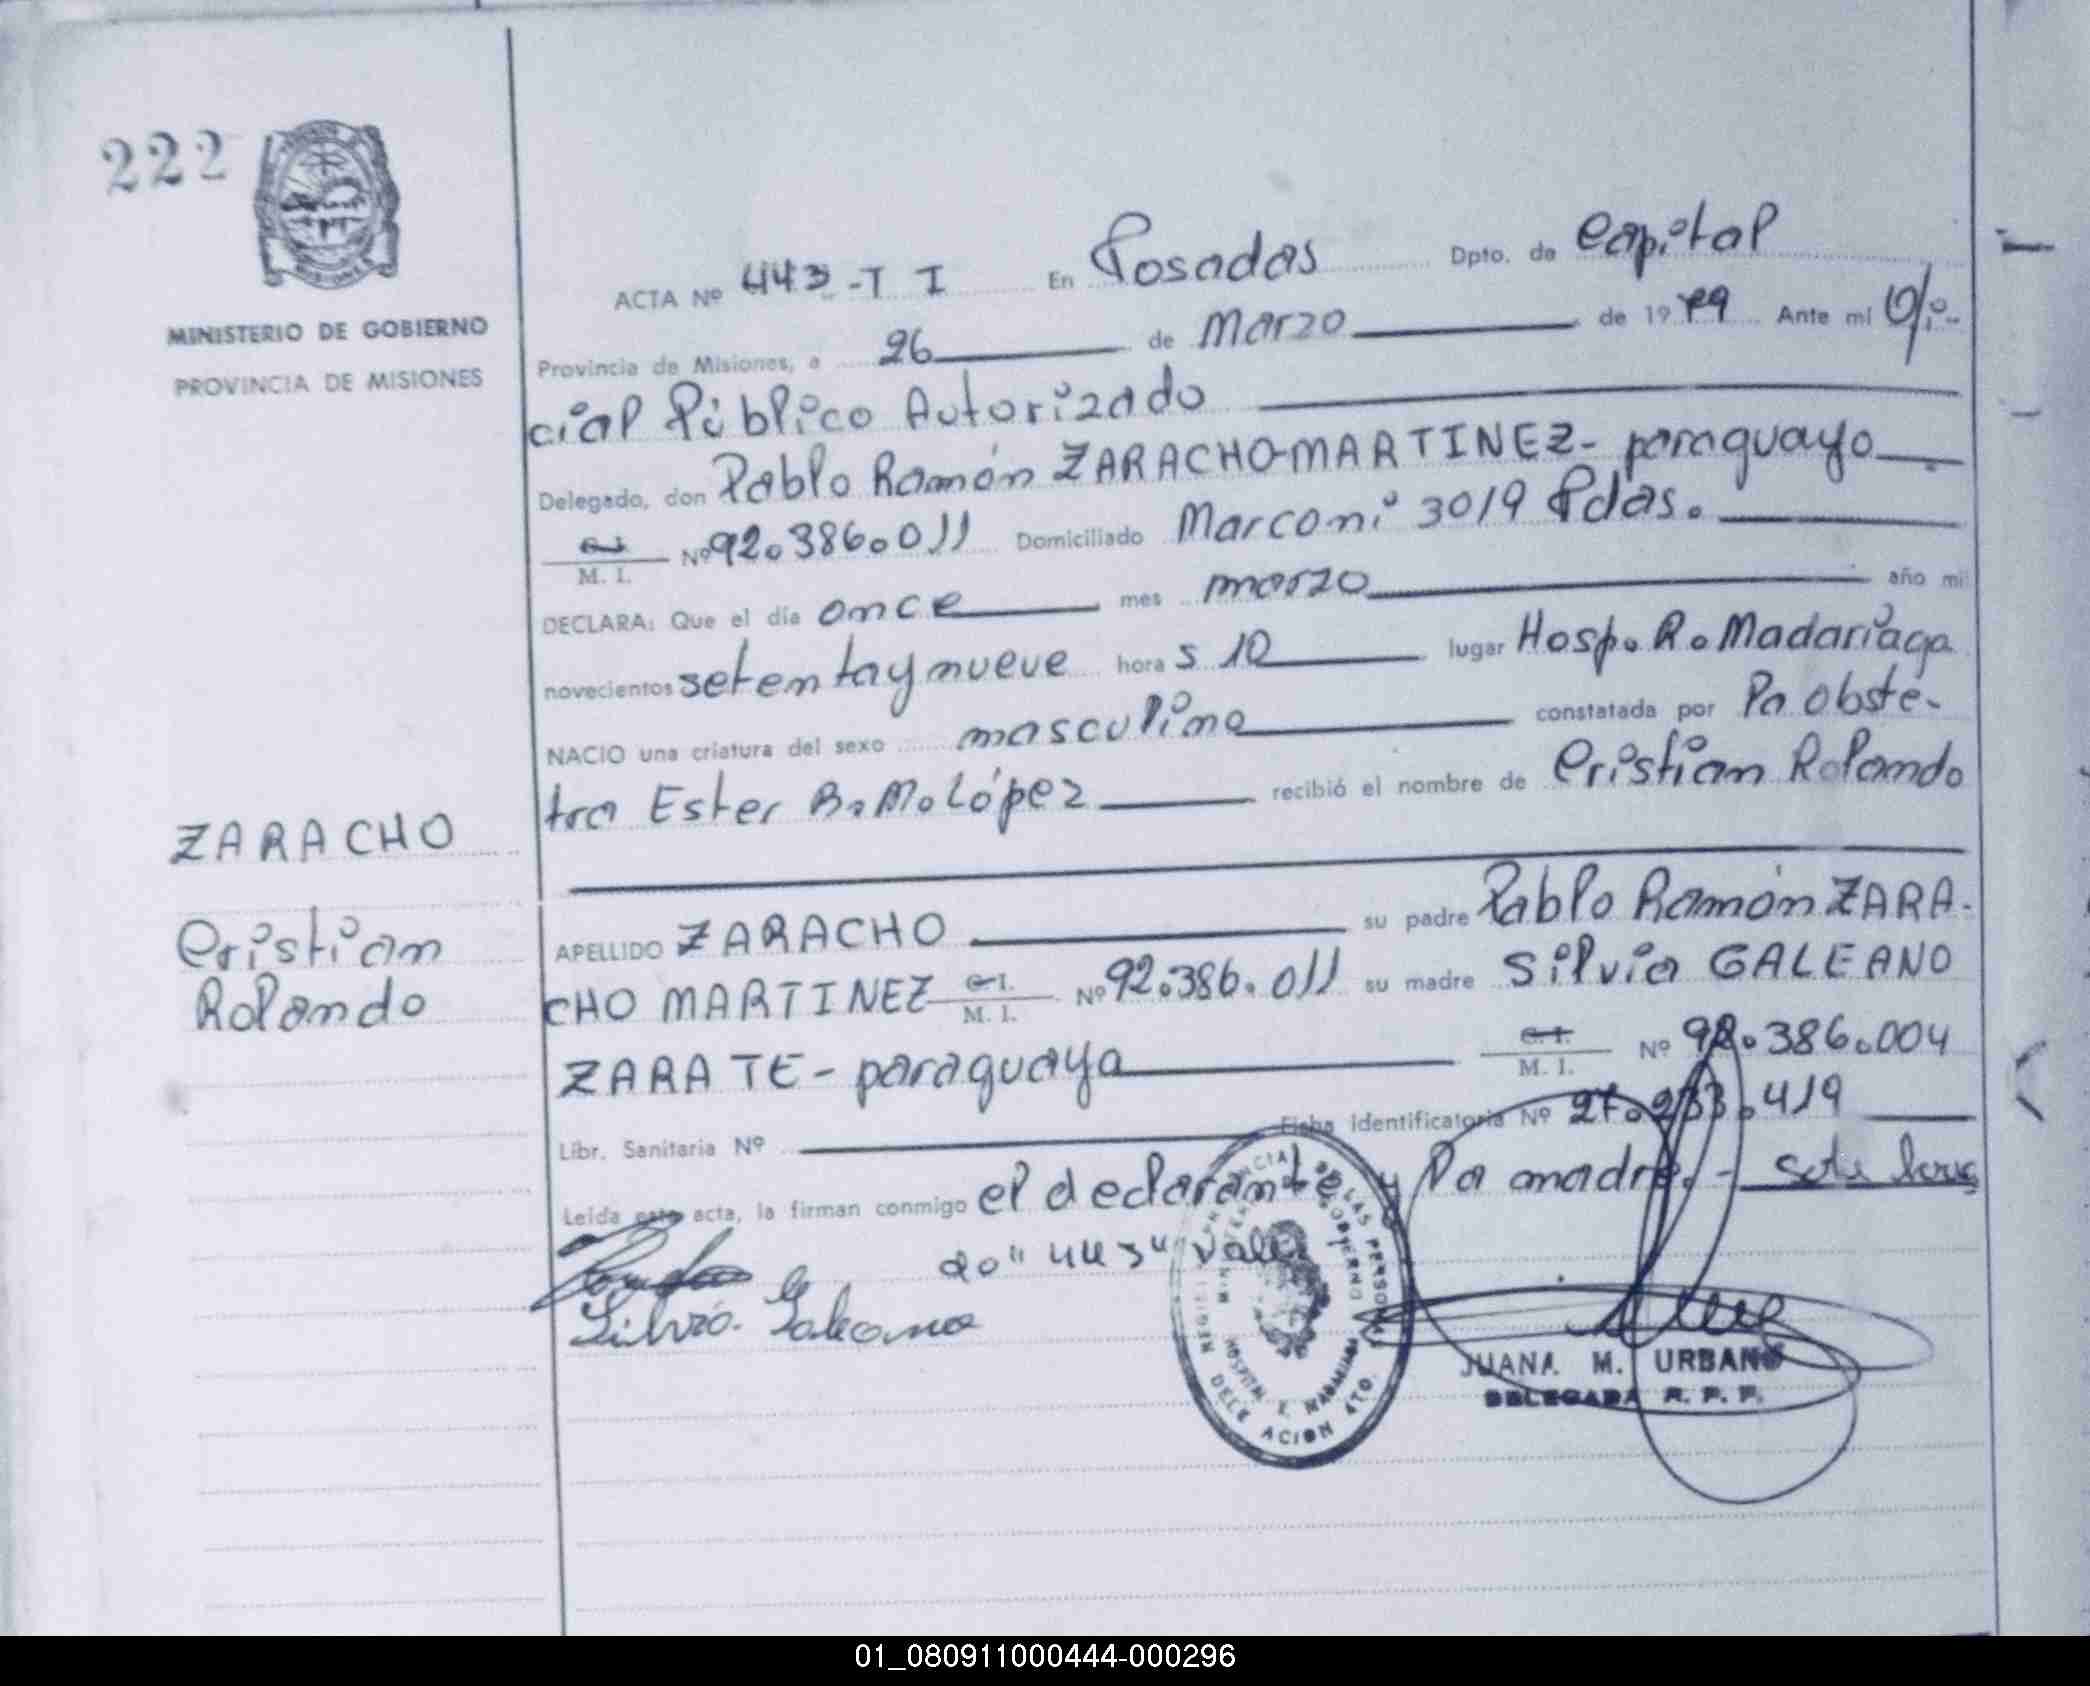 222
MINISTERIO DE GOBIERNO
PROVINCIA DE MISIONES
ACTA Nº 443-T I En Posadas Dpto. de Capital
Provincia de Misiones, a 26 de Marzo de 1979 Ante mi Ofi-
cial Público Autorizado
Delegado, don Pablo Ramón ZARACHO-MARTINEZ- paraguayo
C.I. M. I. Nº 92.386.011 Domiciliado Marconi 3019 Pdas.
DECLARA: Que el día once mes marzo año mil
novecientos setentaynueve hora s 10 lugar Hosp. R. Madariaga
NACIO una criatura del sexo masculino constatada por la obsté-
tra Ester B. M. López recibió el nombre de Cristian Rolando
ZARACHO
Cristian
Rolando
APELLIDO ZARACHO su padre Pablo Ramón ZARA-
CHO MARTINEZ C.I. M. I. Nº 92.386.011 su madre Silvia GALEANO
ZARATE - paraguaya C.I. M. I. Nº 92.386.004
Libr. Sanitaria Nº Ficha Identificatoria Nº 27.233.419
Leída esta acta, la firman conmigo el declarante y la madre.-
do "443" Vale
Silvia Galeano
HOSPITAL R. MADARIAGA
JUANA M. URBANO
DELEGADA R. P. P.
01_080911000444-000296